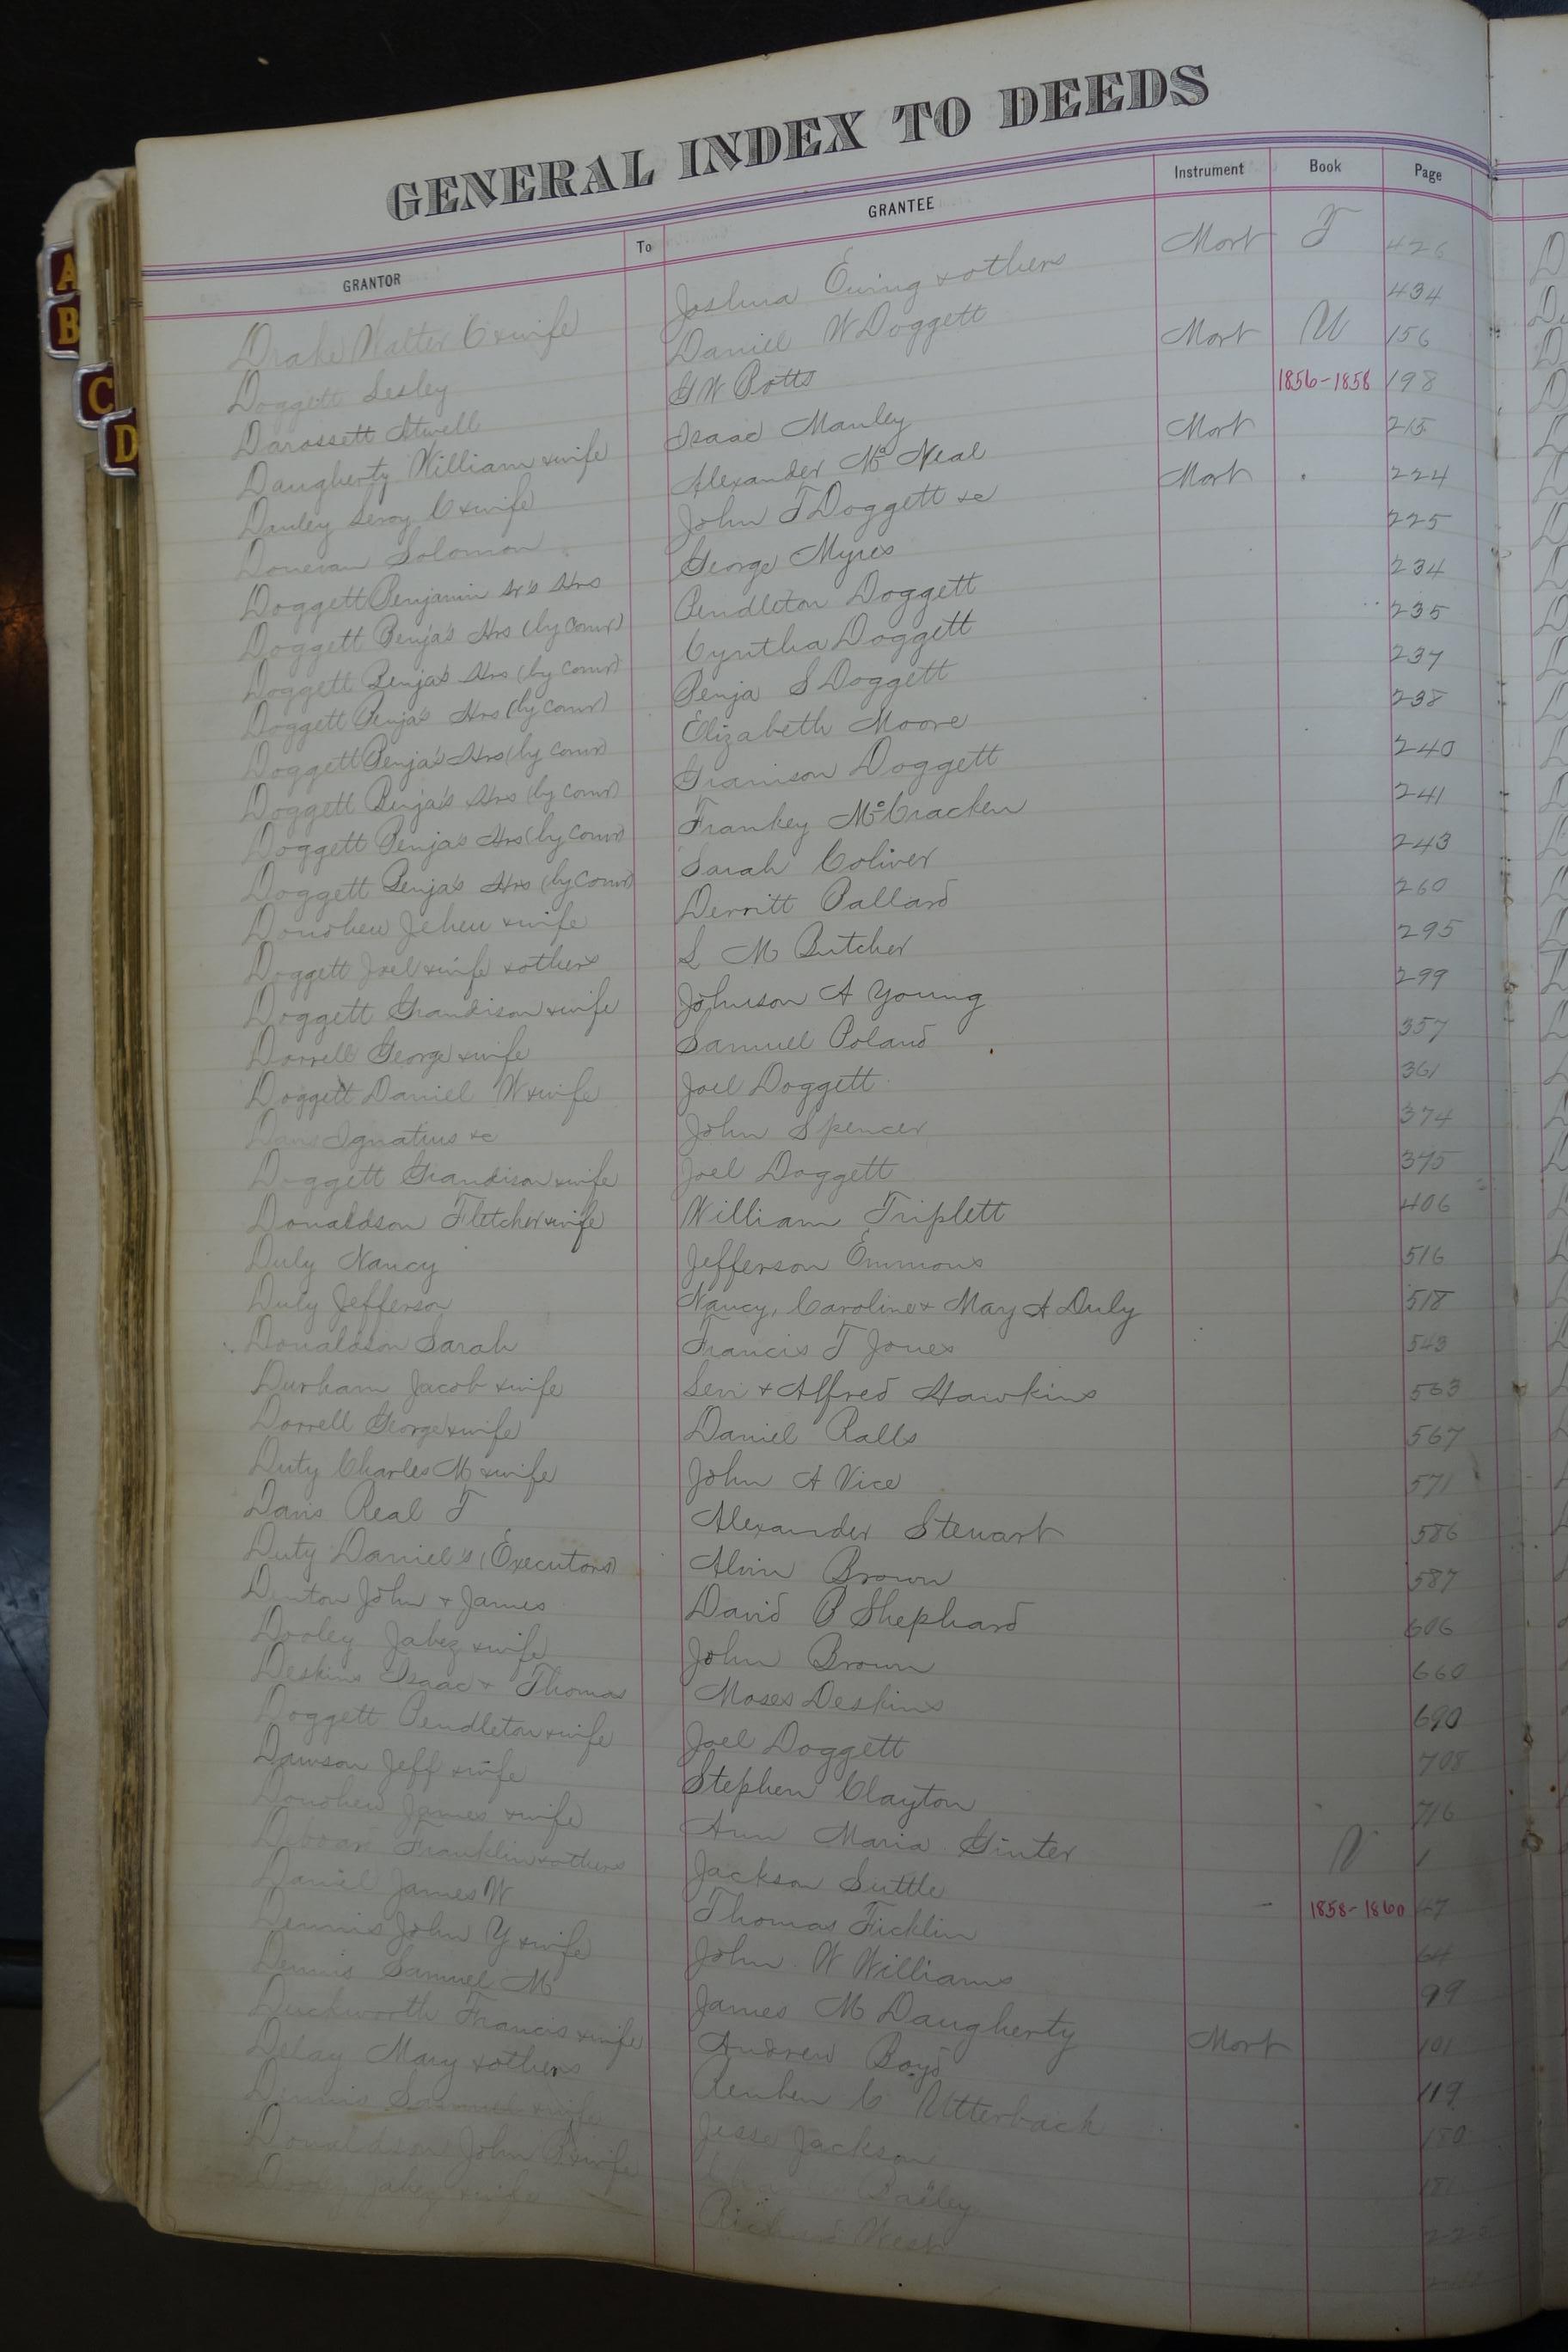 GENERAL INDEX TO DEEDS
GRANTOR To GRANTEE Instrument Book Page
Drake Walter C & wife Joshua Ewing & others Mort T 426
Doggett Lesley Daniel W Doggett 434
Darossett Atwell G W Botts Mort U 156
Daugherty William & wife Isaac Manley 1856-1858 198
Danley Leroy C & wife Alexander Mc Neal Mort 215
Donevan Solomon John T Doggett &c Mort 224
Doggett Benjamin Sr's Hrs George Myres 225
Doggett Benja's Hrs (by Comr) Pendleton Doggett 234
Doggett Benja's Hrs (by Comr) Cyntha Doggett 235
Doggett Benja's Hrs (by Comr) Benja S Doggett 237
Doggett Benja's Hrs (by Comr) Elizabeth Moore 238
Doggett Benja's Hrs (by Comr) Granison Doggett 240
Doggett Benja's Hrs (by Comr) Frankey McCracken 241
Doggett Benja's Hrs (by Comr) Sarah Coliver 243
Donohew Jehew & wife Derritt Ballard 260
Doggett Joel & wife & others L M Butcher 295
Doggett Grandison & wife Johnson A Young 299
Dorrell George & wife Samuel Poland 357
Doggett Daniel W & wife Joel Doggett 361
Davis Ignatius &c John Spencer 374
Doggett Grandison & wife Joel Doggett 375
Donaldson Fletcher & wife William Triplett 406
Duly Nancy Jefferson Emmons 516
Duly Jefferson Nancy, Caroline & May A Duly 518
Donaldson Sarah Francis T Jones 543
Durham Jacob & wife Levi & Alfred Hawkins 563
Dorrell George & wife Daniel Ralls 567
Duty Charles M & wife John A Vice 571
Davis Real T Alexander Stewart 586
Duty Daniel's (Executors) Alvin Brown 587
Denton John & James David B Shephard 606
Dooley Jabez & wife John Brown 660
Deskins Isaac & Thomas Moses Deskins 690
Doggett Pendleton & wife Joel Doggett 708
Dawson Jeff & wife Stephen Clayton 716
Donohew James & wife Ann Maria Ginter V 1
Franklin & others Jackson Suttle 1858-1860 47
Daniel James W Thomas Ficklin 64
Dennis John Y & wife John W Williams 99
Dennis Samuel M James M Daugherty Mort 101
Duckworth Francis & wife Andrew Boyd 119
Delay Mary & others Reuben C Utterback 150
Dennis Samuel & wife Jesse Jackson 181
Donaldson John B & wife Bailey
Dooley Jabez & wife Richard West